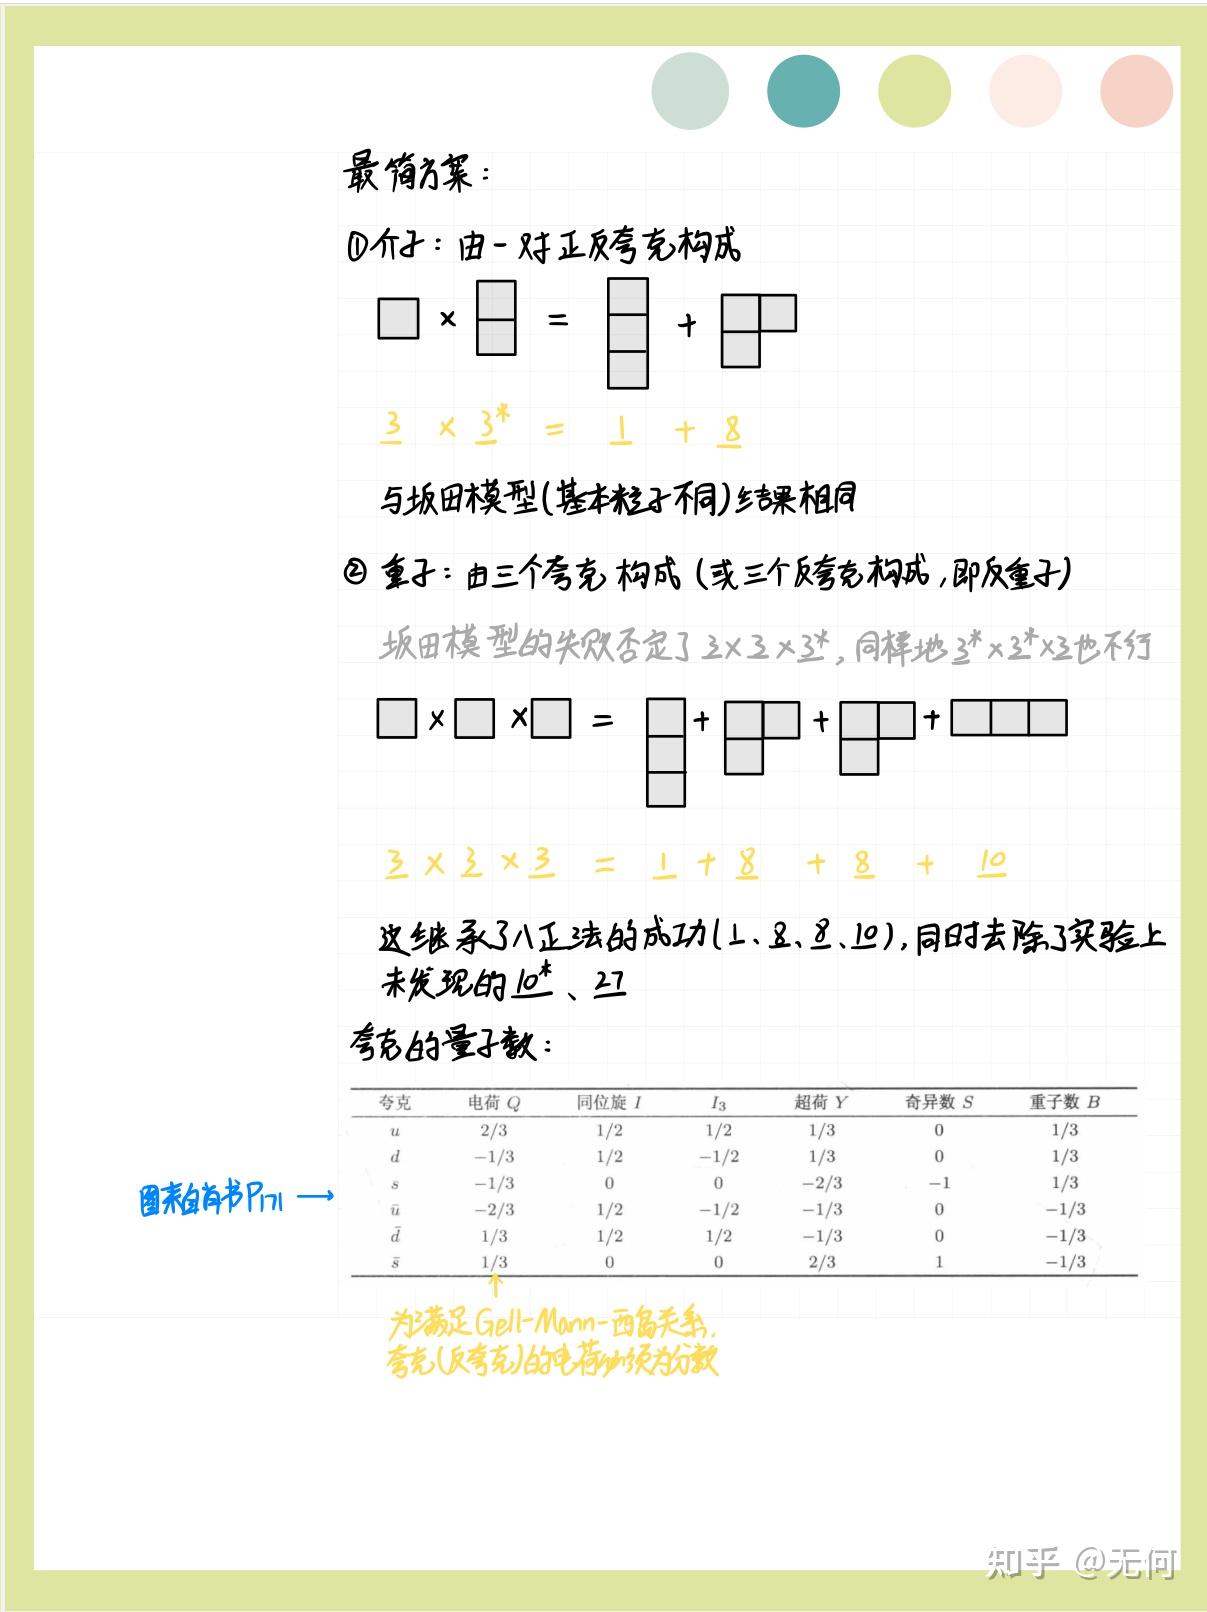 最简方案：
①介子：由一对正反夸克构成
× = +
3 × 3* = 1 + 8
与坂田模型(基本粒子不同)结果相同
② 重子：由三个夸克构成 (或三个反夸克构成,即反重子)
坂田模型的失败否定了3×3×3*,同样地3*×3*×3也不行
× × = + + +
3 × 3 × 3 = 1 + 8 + 8 + 10
这继承了八正法的成功(1、8、8、10),同时去除了实验上
未发现的10*、27
夸克的量子数：
夸克 电荷 Q 同位旋 I I₃ 超荷 Y 奇异数 S 重子数 B
u 2/3 1/2 1/2 1/3 0 1/3
d −1/3 1/2 −1/2 1/3 0 1/3
s −1/3 0 0 −2/3 −1 1/3
ū −2/3 1/2 −1/2 −1/3 0 −1/3
d̄ 1/3 1/2 1/2 −1/3 0 −1/3
s̄ 1/3 0 0 2/3 1 −1/3
图来自肖书P171 →
为满足Gell-Mann-西岛关系,
夸克(反夸克)的电荷必须为分数
知乎 @无何